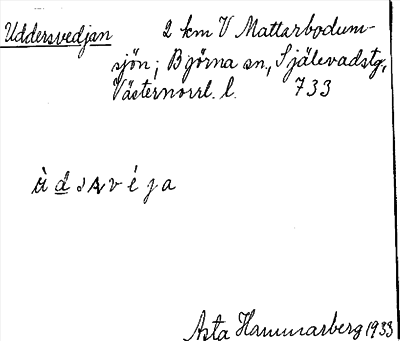 Uddersvedjan 2 km V Mattarbodum-
sjön; Björna sn, Själevadstg,
Västernorrl. l. 733
Asta Hammarberg 1933